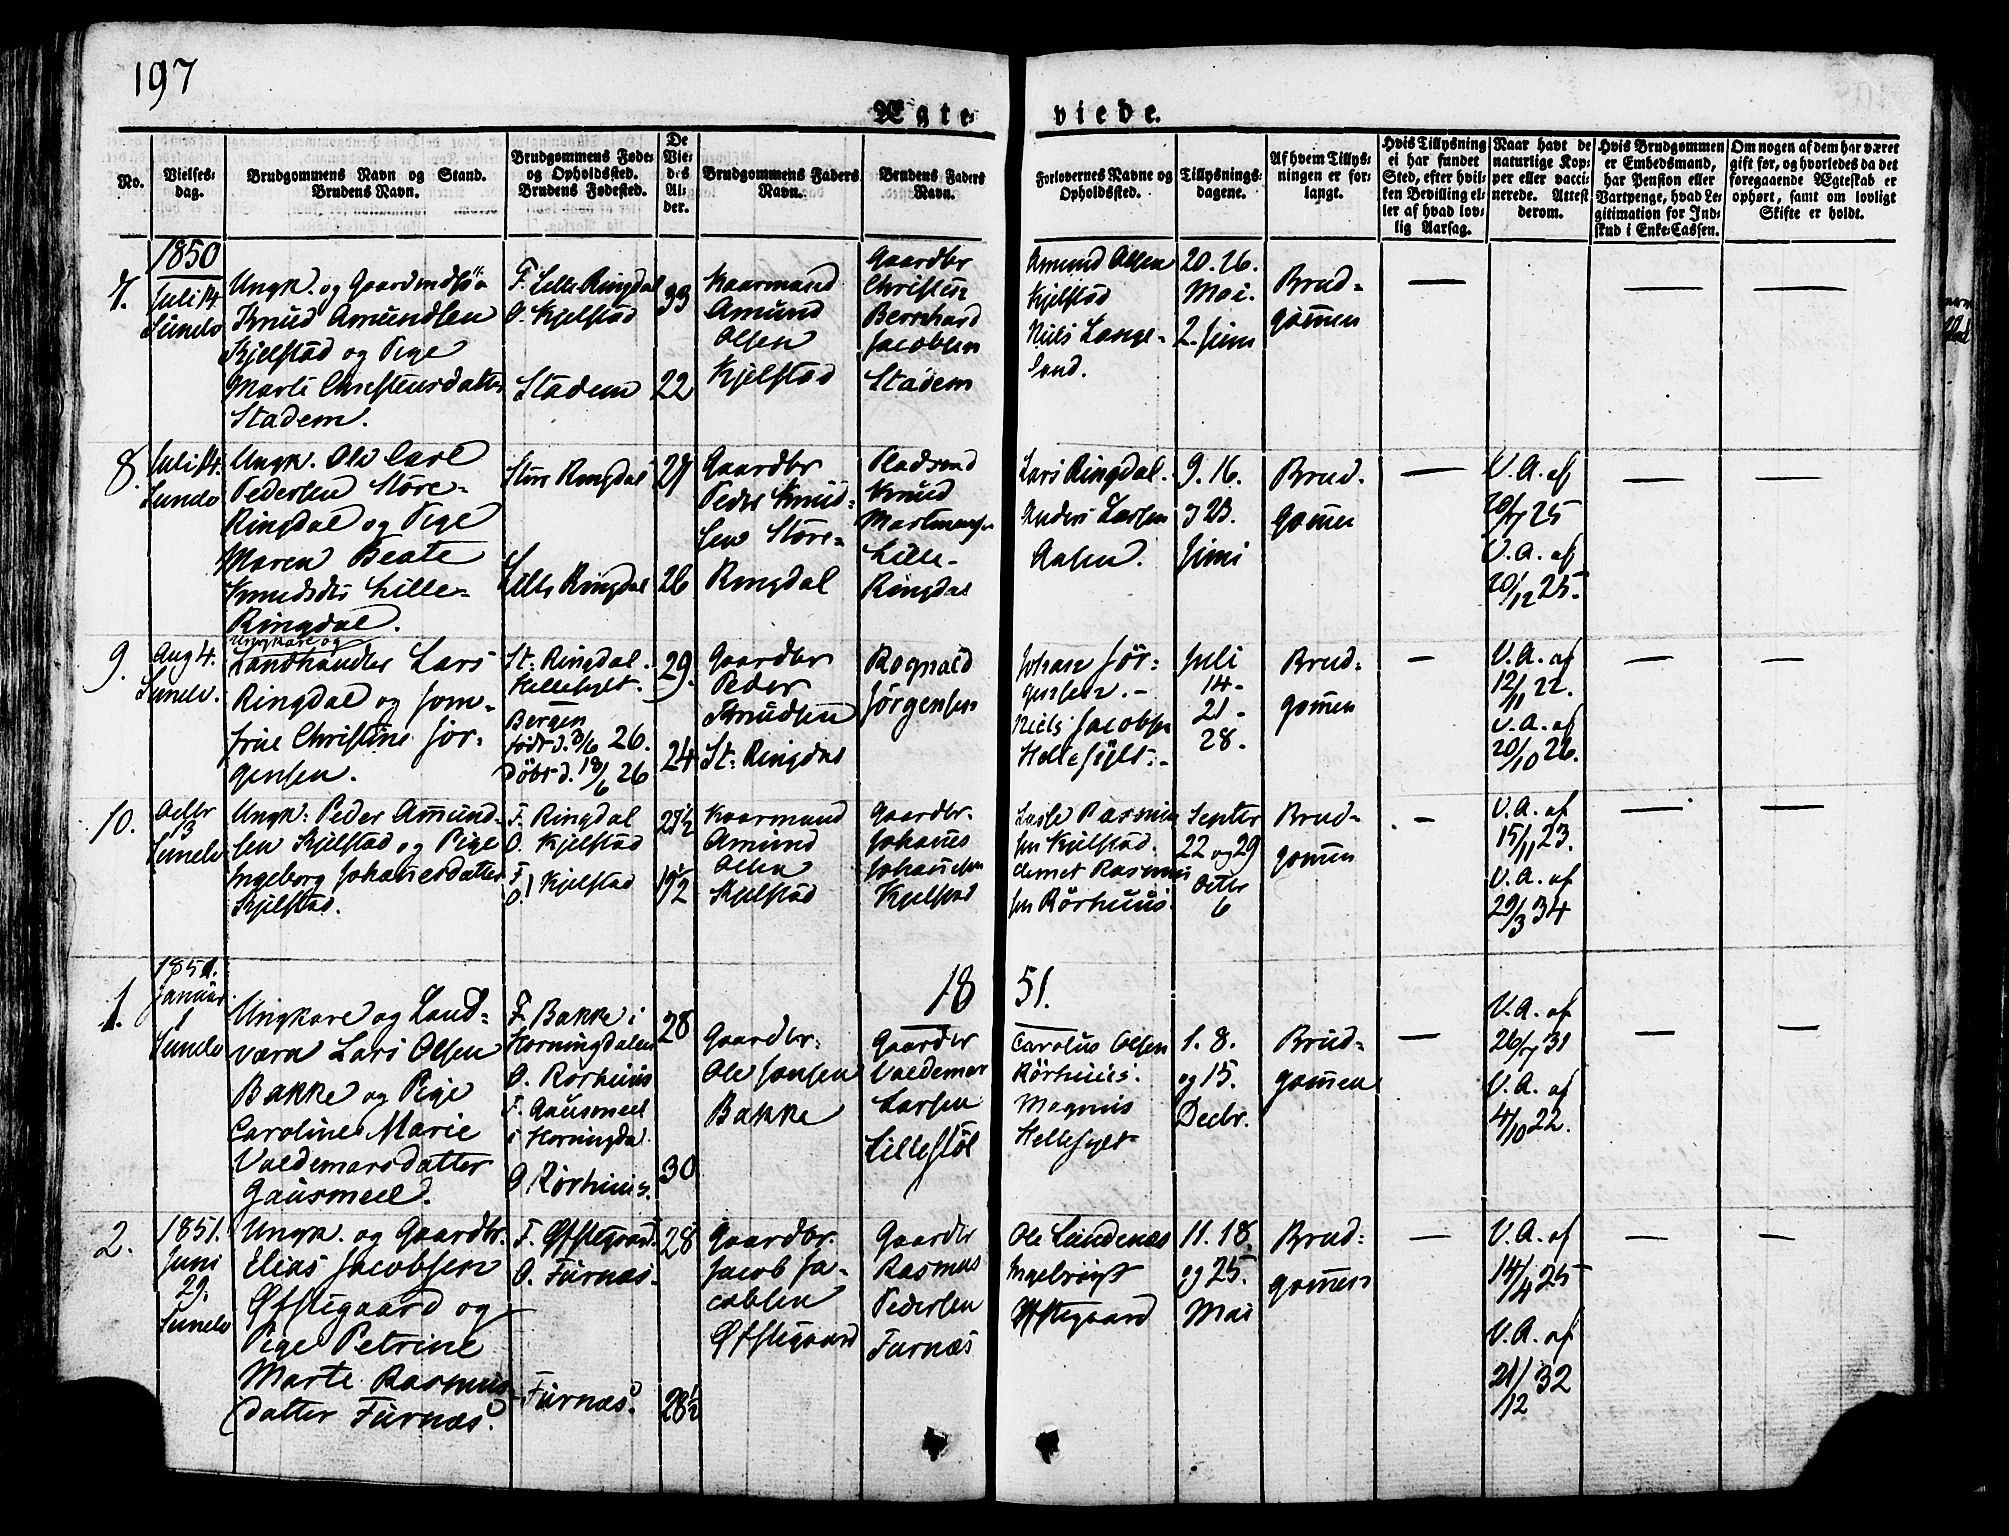 197
Ægte viede.
No.
Vielses-
dag.
Brudgommens Navn og Stand.
Brudens Navn.
Brudgommens Føde-
og Opholdssted.
Brudens Fødested.
De
Vie-
des
Al-
der.
Brudgommens Faders
Navn.
Brudens Faders
Navn.
Forlovernes Navne og
Opholdssted.
Tillysnings-
dagene.
Af hvem Tillys-
ningen er for-
langt.
Hvis Tillysning
ei har fundet
Sted, efter hvil-
ken Bevilling el-
ler af hvad lov-
lig Aarsag.
Naar havt de
naturlige Kop-
per eller vacci-
nerede. Attest
derom.
Hvis Brudgommen
er Embedsmand,
har Pension eller
Vartpenge, hvad Le-
gitimation for Ind-
skud i Enke-Cassen.
Om nogen af dem har været
gift før, og hvorledes da det
foregaaende Ægteskab er
ophørt, samt om lovligt
Skifte er holdt.
1850
7.
Juli 14
Sunelv
Ungk. og
Knud Amundsen
Kjelstad og Pige
Marte Christensdatter
Stadem.
F. Lille Ringdal
O. Kjelstad
Stadem
33
22
Kaarmand
Amund
Olsen
Kjelstad
Gaardbr
Christen
Bernhard
Jacobsen
Stadem
Amund Olsen
Kjelstad
Niels Lange-
land.
20. 26.
Mai.
2 Juni
Brud-
gommen
8.
Juli 14.
Sunelv
Ungk. Ole Carl
Pedersen Store-
Ringdal og Pige
Maren Beate
Knudsdtr Lille-
Ringdal.
Store Ringdal
Lille Ringdal
27
26
Gaardbr
Peder Knud-
sen Store-
Ringdal
Pladsmd
Knud
Lille-
Ringdal
Lars Ringdal.
Anders Larsen
Aasen.
9. 16.
og 23.
Juni
Brud-
gommen
V. A. af
25
V. A. af
20/12 25.
9.
Aug 4.
Sunelv.
Ungkarl og
Landhandler Lars
Ringdal og Jom-
frue Christine Jør-
gensen.
St: Ringdal.
Hellesylt.
Bergen
født d. 3/6 26.
døbt d. 18/6 26
29.
24
Gaardbr
Peder
Knudsen
St: Ringdal
Rognald
Jørgensen
Johan Jør-
gensen. -
Niels Jacobsen
Hellesylt. -
Juli
14 -
21 -
28.
Brud-
gommen
V. A. af
12/11 22.
V. A. af
20/10 26.
10.
Octbr
13
Sunelv
Ungk: Peder Amund-
sen Kjelstad og Pige
Ingeborg Johannesdatter
Kjelstad.
F. Ringdal
O. Kjelstad
F.
O. Kjelstad
27 1/2
19 1/2
Kaarmand
Amund
Olsen
Kjelstad
Gaardbr.
Johannes
Johannesen
Kjelstad
Lasse Rasmus
sen Kjelstad.
Rasmus
sen Rørhuus.
Septer
22 og 29
Octbr
6
Brud-
gommen
V. A. af
15/11 23.
V. A. af
29/3 34
18 51.
1851.
1.
Januar
1
Sunelv
Ungkare og Land-
værn Lars Olsen
Bakke og Pige
Caroline Marie
Valdemarsdatter
Gausmeel.
F. Bakke i
Horningdalen
O. Rørhuus
F. Gausmeel
i Horningdal
O. Rørhuus.
28
30
Gaardbr.
Ole Jonsen
Bakke
Gaardbr
Valdemar
Larsen
Lillestøl
Carolus Olsen
Rørhuus.
Magnus
Hellesylt
1. 8.
og 15.
Decbr.
Brud-
gommen
V. A. af
26/7 31
V. A. af
4/10 22.
2.
1851.
Juni
29.
Sunelv
Ungk. og Gaardbr.
Elias Jacobsen
Øfstegaard og
Pige Petrine
Marte Rasmus-
datter Furnæs.
F. Øfstegaard.
O. Furnæs.
Furnæs.
28
28 1/2
Gaardbr.
Jacob Ja-
cobsen
Øfstegaard
Gaardbr
Rasmus
Pedersen
Furnæs
Ole Lundenæs
Ingebrigt
Øfstegaard
11. 18.
og 25.
Mai
Brud-
gommen
V. A. af
14/4 25
V. A. af
21/12 32